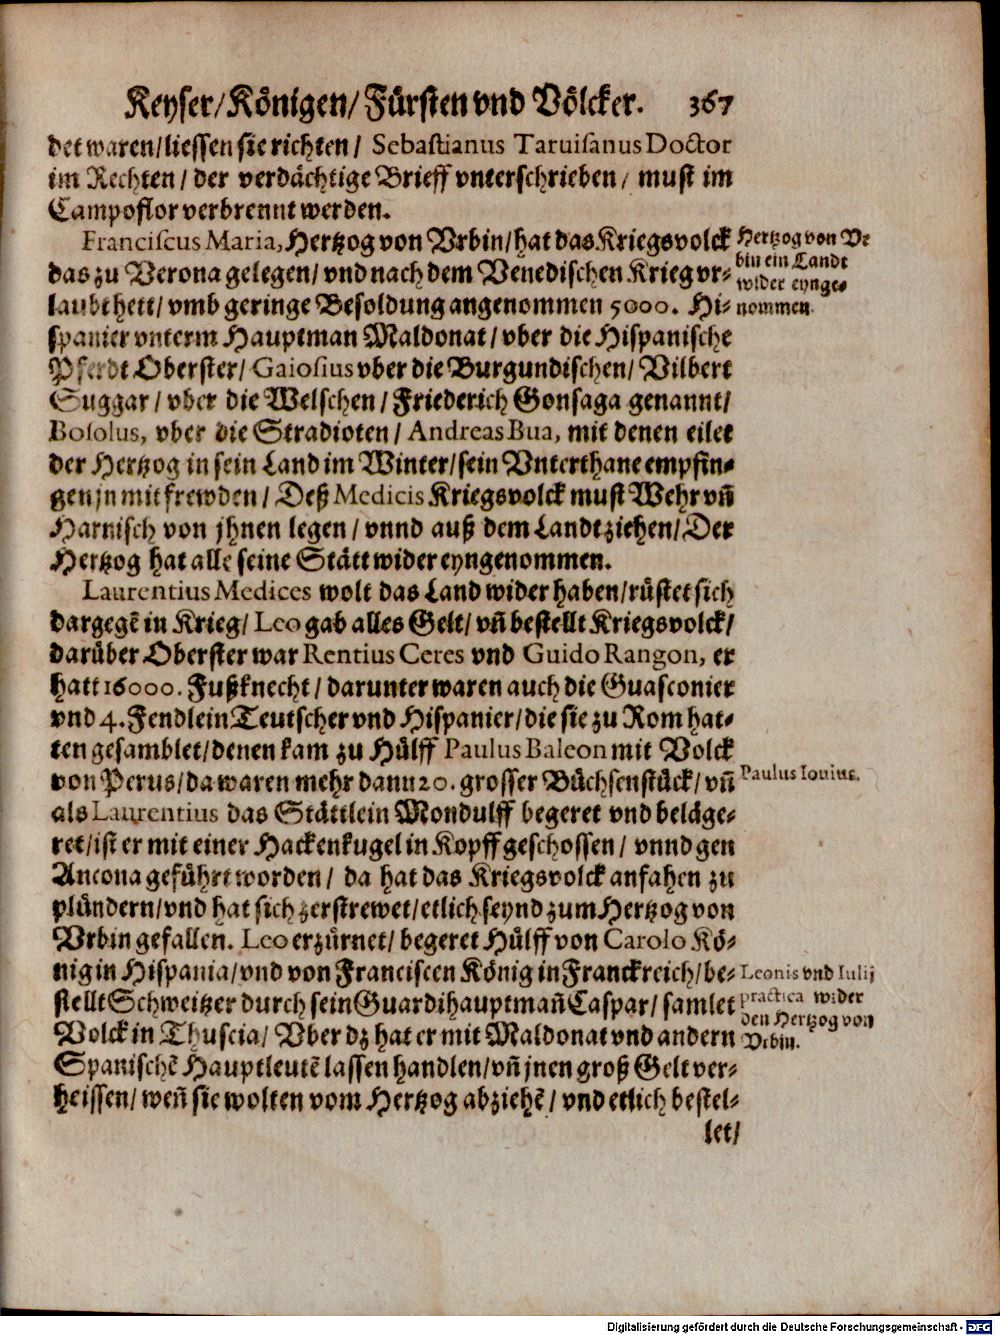 Keyser/Königen/Fürsten vnd Völcker. 367
det waren/liessen sie richten/ Sebastianus Taruisanus Doctor
im Rechten/der verdächtige Brieff vnterschrieben/ must im
Campoflor verbrennt werden.
Franciscus Maria, Hertzog von Vrbin/hat das Kriegsvolck
das zu Verona gelegen/vnd nach dem Venedischen Krieg vr-
laubt hett/vmb geringe Besoldung angenommen 5000. Hi-
spanier vnterm Hauptman Maldonat/vber die Hispanische
Pferdt Oberster/Gaiosius vber die Burgundischen/Vilbert
Suggar/vber die Welschen/Friederich Gonsaga genannt/
Bosolus, vber die Stradioten/Andreas Bua, mit denen eilet
der Hertzog in sein Land im Winter/sein Vnterthane empfin-
gen jn mit frewden/Deß Medicis Kriegsvolck must Wehr vñ
Harnisch von jhnen legen/vnnd auß dem Landt ziehen/Der
Hertzog hat alle seine Stätt wider eyngenommen.
Hertzog von Vr
bin ein Landt
wider eynge-
nommen.
Laurentius Medices wolt das Land wider haben/rüstet sich
dargegē in Krieg/Leo gab alles Gelt/vñ bestellt Kriegsvolck/
darüber Oberster war Rentius Ceres vnd Guido Rangon, er
hatt 16000. Fußknecht/darunter waren auch die Guasconier
vnd 4. Fendlein Teutscher vnd Hispanier/die sie zu Rom hat-
ten gesamblet/denen kam zu Hülff Paulus Baleon mit Volck
von Perus/da waren mehr dann 20. grosser Büchsenstück/vñ
als Laurentius das Stättlein Mondulff begeret vnd beläge-
ret/ist er mit einer Hackenkugel in Kopff geschossen/vnnd gen
Ancona geführt worden/da hat das Kriegsvolck anfahen zu
plündern/vnd hat sich zerstrewet/etlich seynd zum Hertzog von
Vrbin gefallen. Leo erzürnet/begeret Hülff von Carolo Kö-
nig in Hispania/vnd von Franciscen König in Franckreich/be-
stellt Schweitzer durch sein Guardihauptmañ Caspar/samlet
Volck in Thuscia/Vber dz hat er mit Maldonat vnd andern
Spanischē Hauptleutē lassen handlen/vñ jnen groß Gelt ver-
heissen/weñ sie wolten vom Hertzog abziehē/vnd etlich bestel-
let/
Paulus Iouius.
Leonis vnd Iulij
practica wider
den Hertzog von
Vrbin.
Digitalisierung gefördert durch die Deutsche Forschungsgemeinschaft - DFG